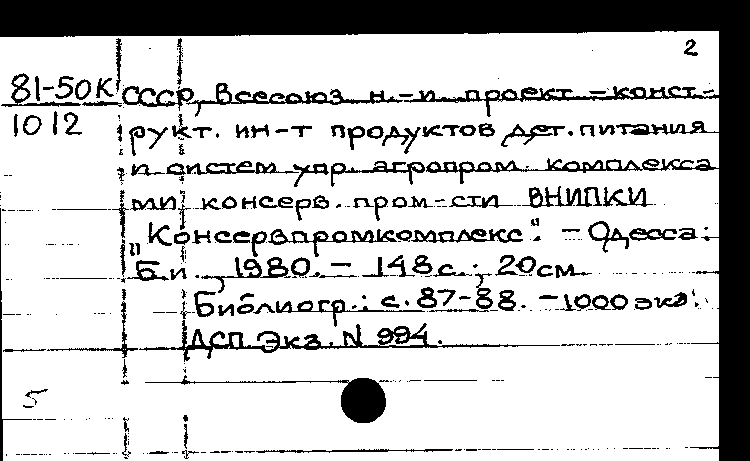 2
81-50К СССР, Всесоюз н.-и проект-конст-
1012 рукт. ин-т продуктов дет. питания
и систем упр. агропром. комплекса
ми консерв. пром-сти ВНИПКИ
„Консервпромкомплекс“. - Одесса:
Б.и., 1980. - 148с.; 20см.
Библиогр.: с. 87-88. - 1000 экз.
ДСП Экз. N 994.
5